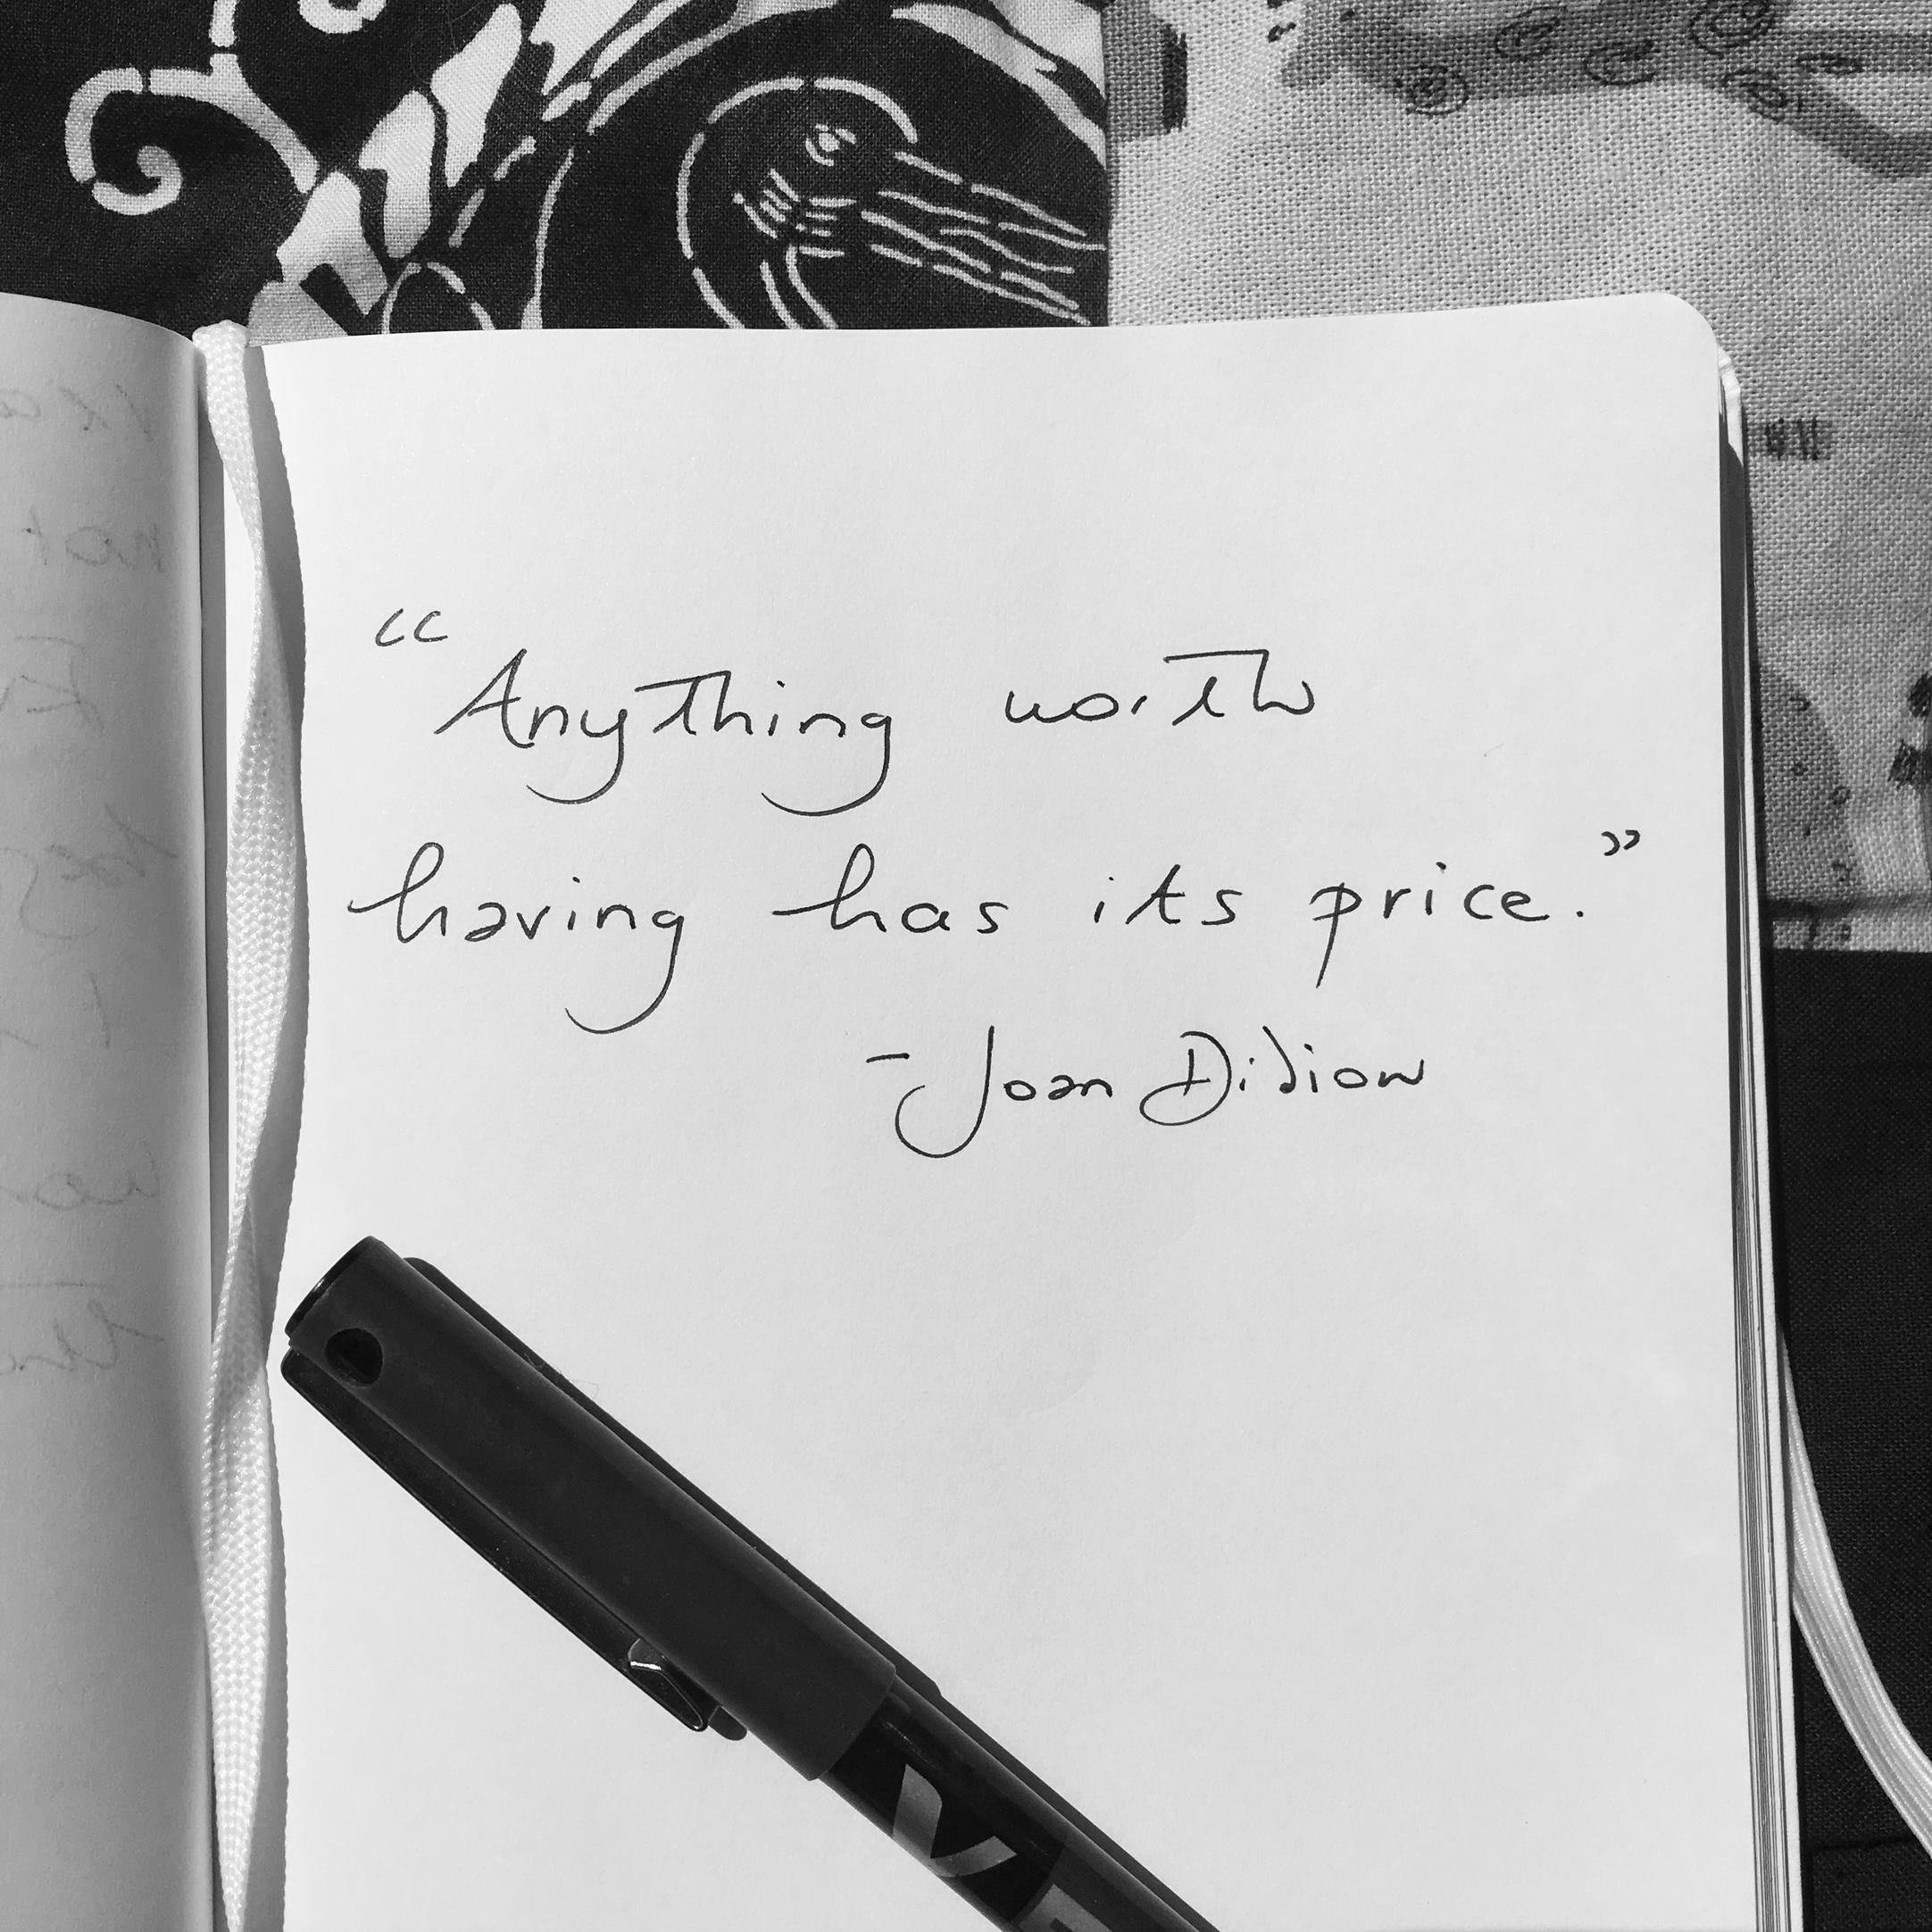 “Anything worth
having has its price.”
-Joan Didion